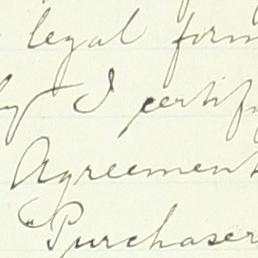 legal form
I certify
Agreement
Purchaser